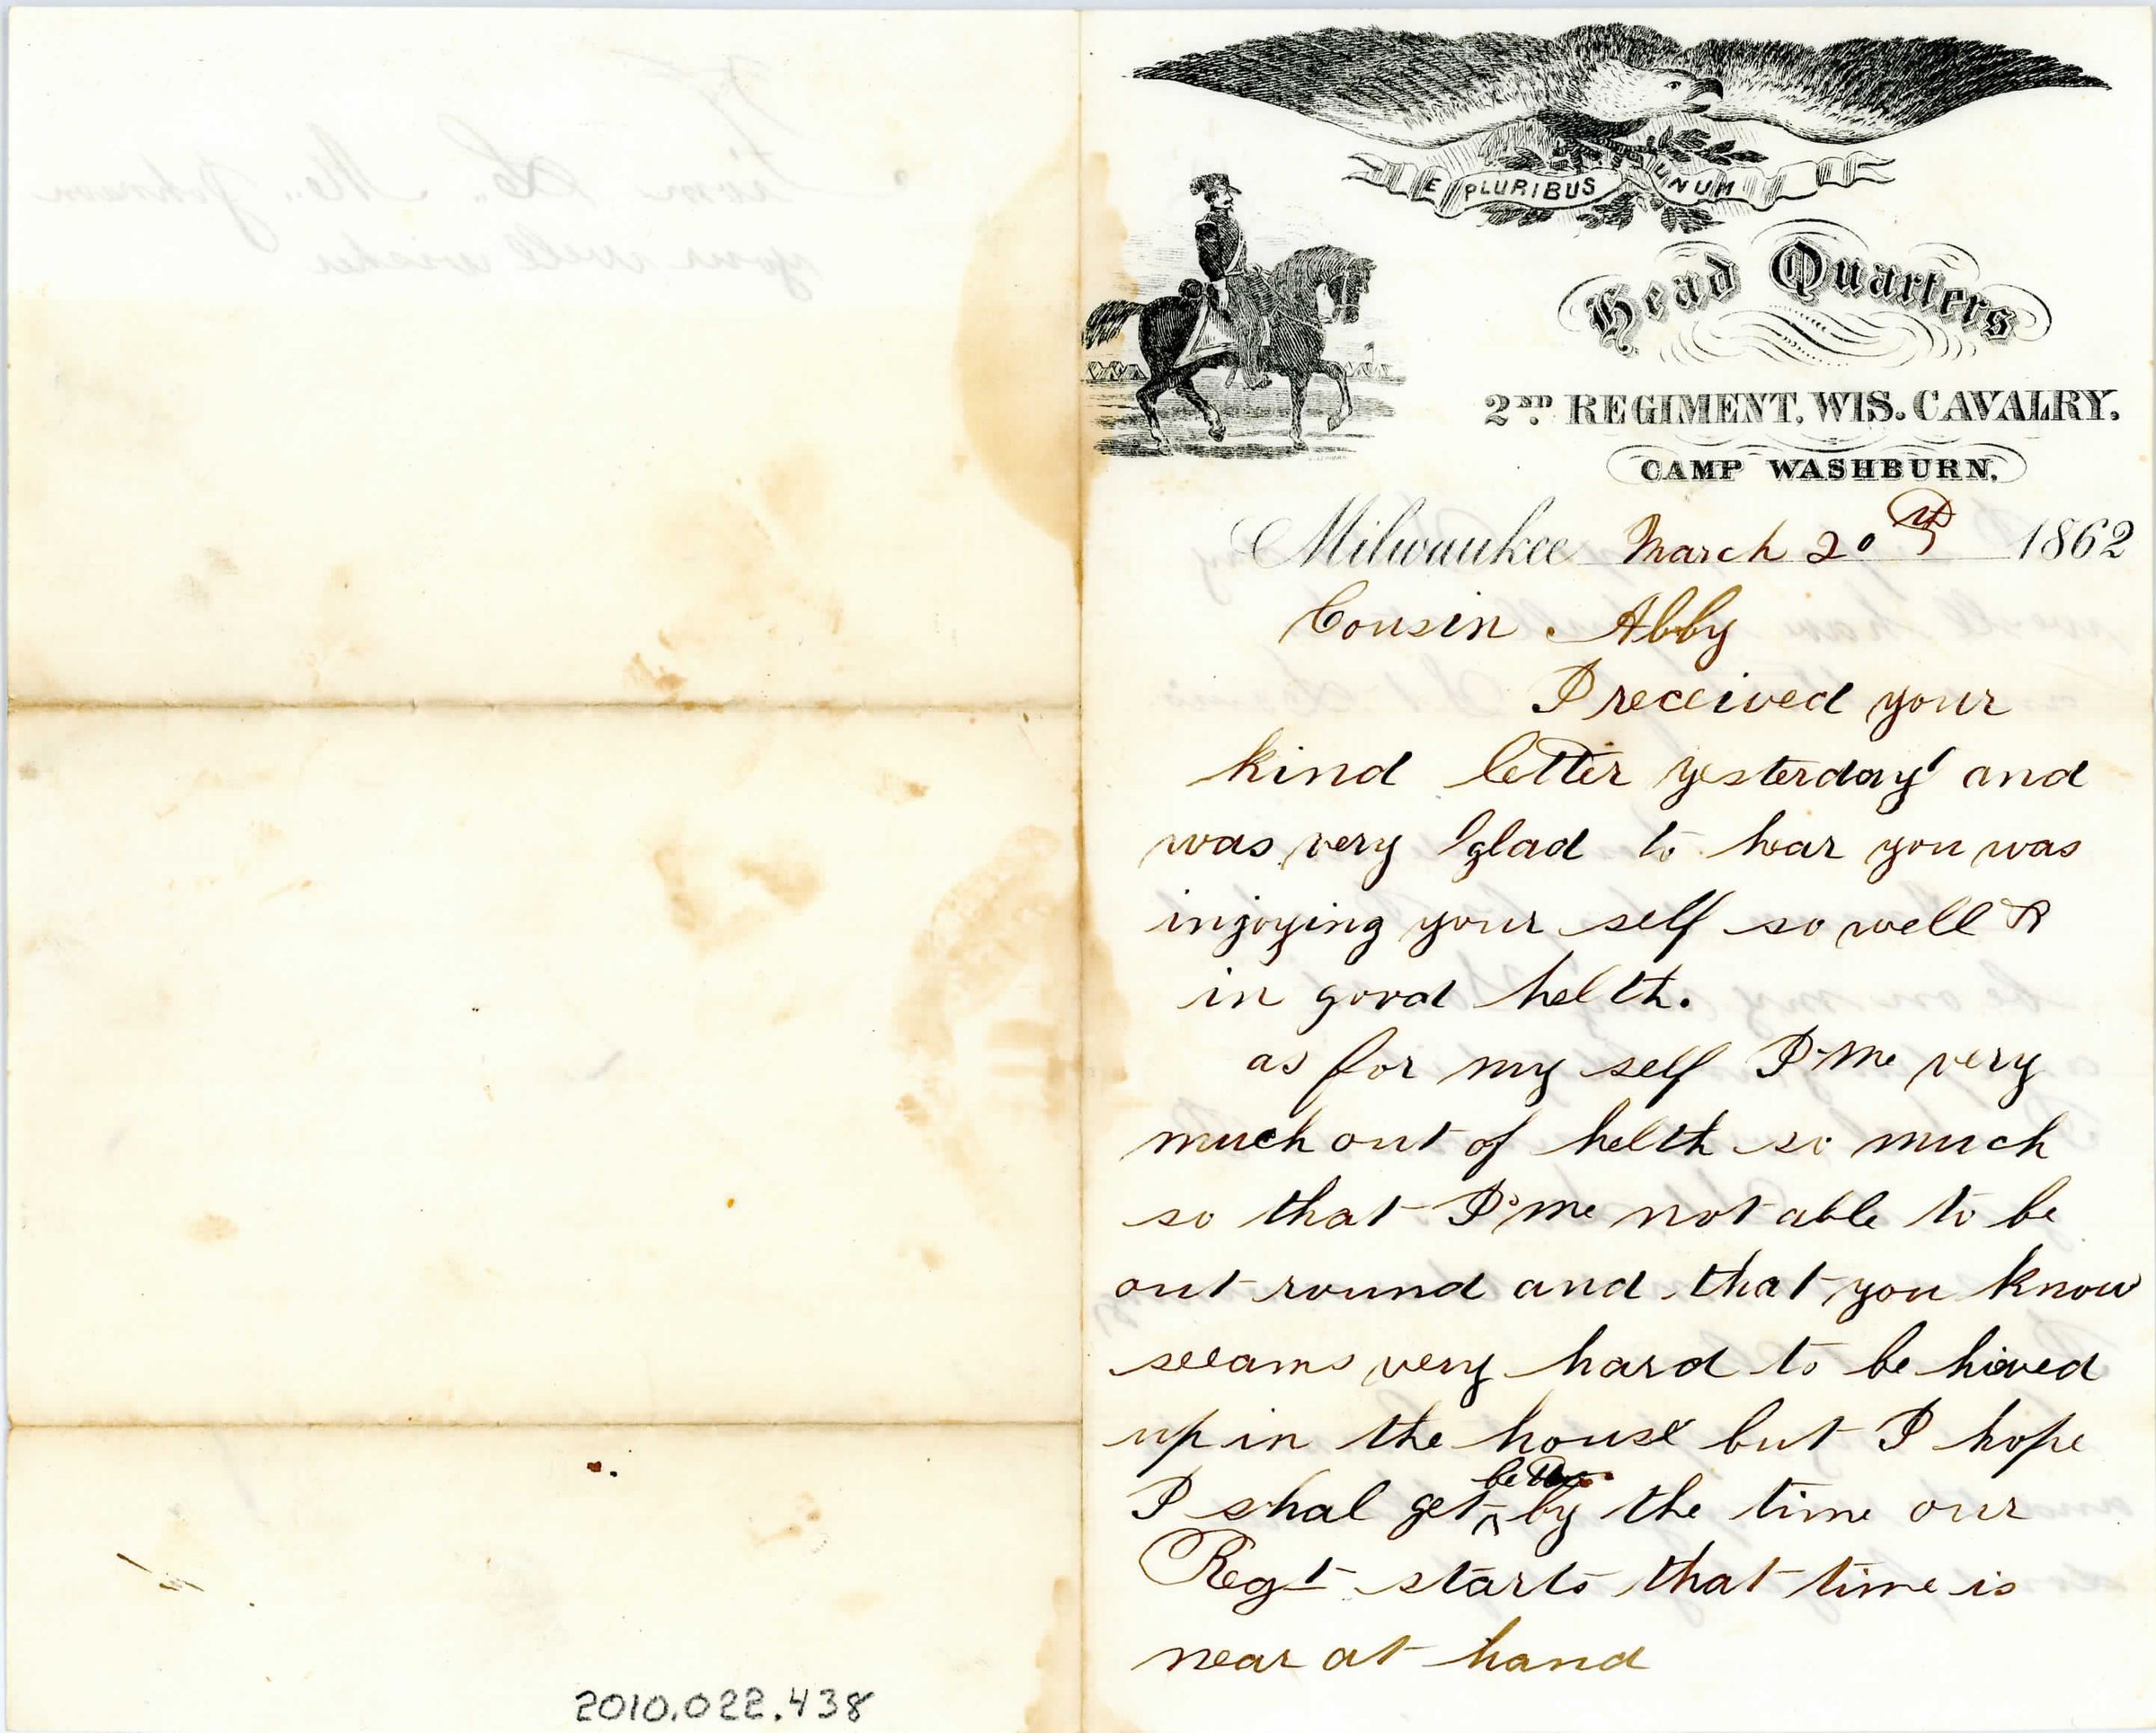 E PLURIBUS UNUM
Head Quarters
2ND REGIMENT, WIS. CAVALRY.
CAMP WASHBURN,
Milwaukee March 20th 1862
Cousin . Abby
I received your
kind letter yesterday and
was very glad to hear you was
injoying your self so well &
in good helth.
as for my self I'me very
much out of helth so much
so that I'me not able to be
out round and that you know
seeams very hard to be hived
up in the house but I hope
I shal get ^ better by the time our
Regt starts that time is
near at hand
from S. Mc. Johnson
your well wisher
2010.022.438